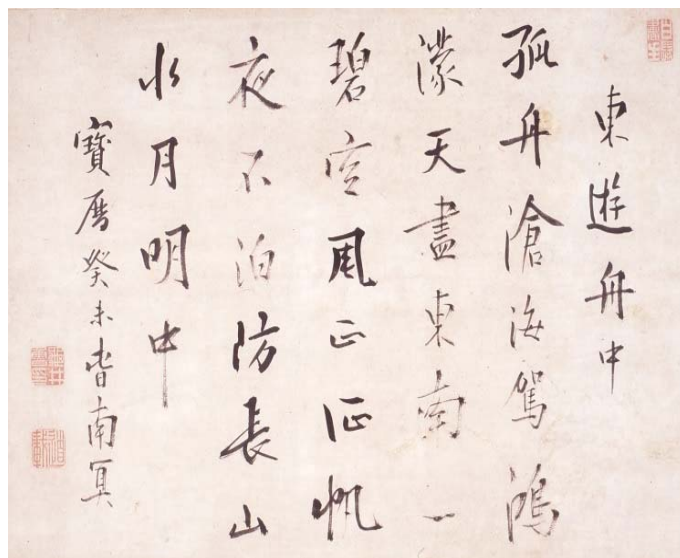 東遊舟中
孤舟滄海駕鴻
濛天盡東南一
碧空風正征帆
夜不泊防長山
水月明中
寶曆癸未南冥